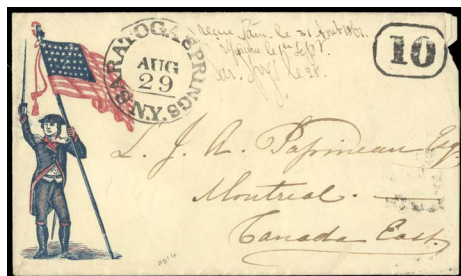 SARATOGA SPRINGS. N.Y.
AUG
29
reçue Sam. le 31 Août 1861.
le 1er Sept.
le 28.
10
L. J. A. Papineau Esq.
Montreal.
Canada East.
2016